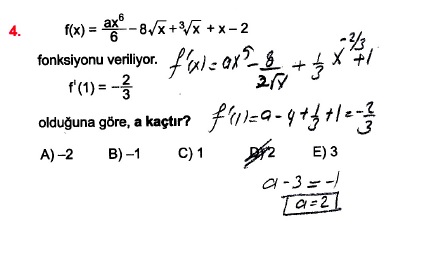 4. f(x) = ax⁶/6 – 8√x + ³√x + x – 2
fonksiyonu veriliyor. f'(x) = ax⁵ – 8/2√x + 1/3 x^(-2/3) + 1
f'(1) = –2/3
olduğuna göre, a kaçtır? f'(1) = a – 4 + 1/3 + 1 = –2/3
A) –2 B) –1 C) 1 D) 2 E) 3
a – 3 = –1
a = 2